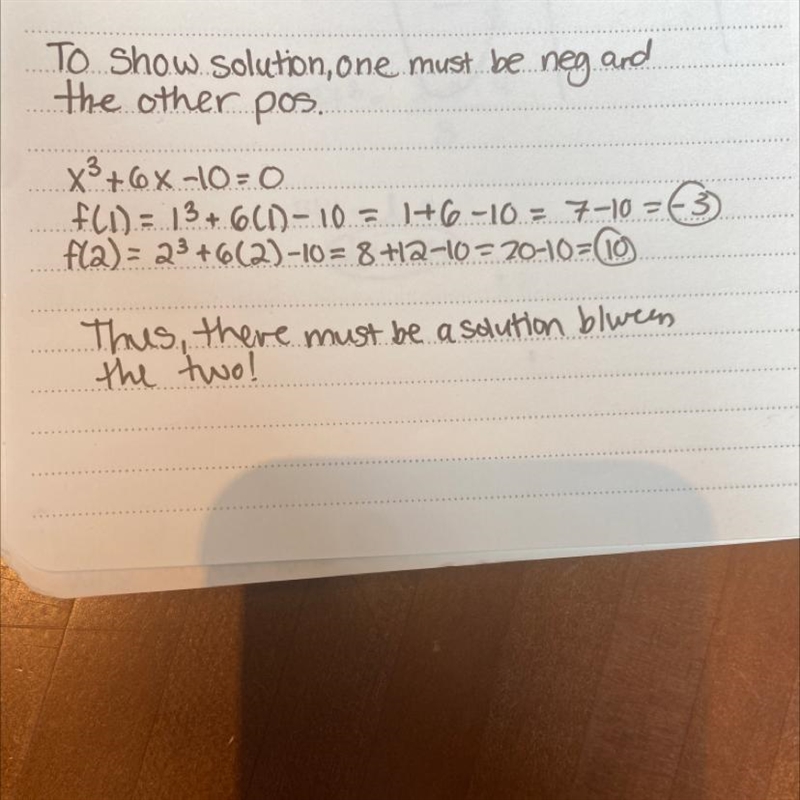 To show solution, one must be neg and
the other pos.
x³+6x-10=0
f(1) = 1³+ 6(1)- 10 = 1+6-10 = 7-10 = -3
f(2) = 2³+6(2)-10 = 8+12-10 = 20-10 = 10
Thus, there must be a solution blween
the two!